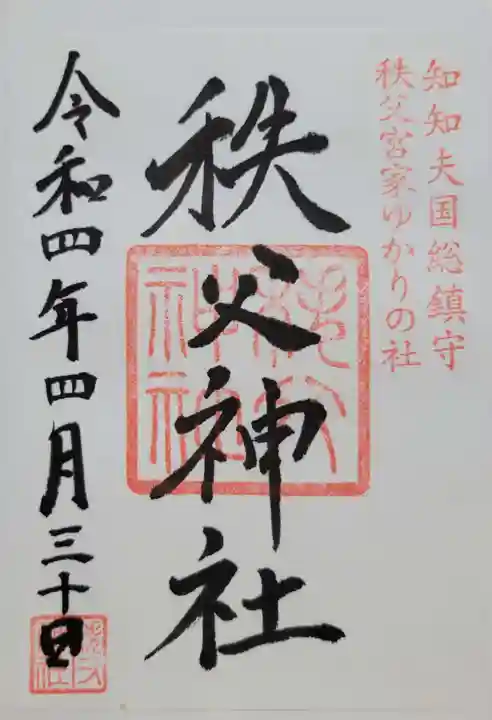 知知夫国総鎮守
秩父宮家ゆかりの社
秩父神社
令和四年四月三十日